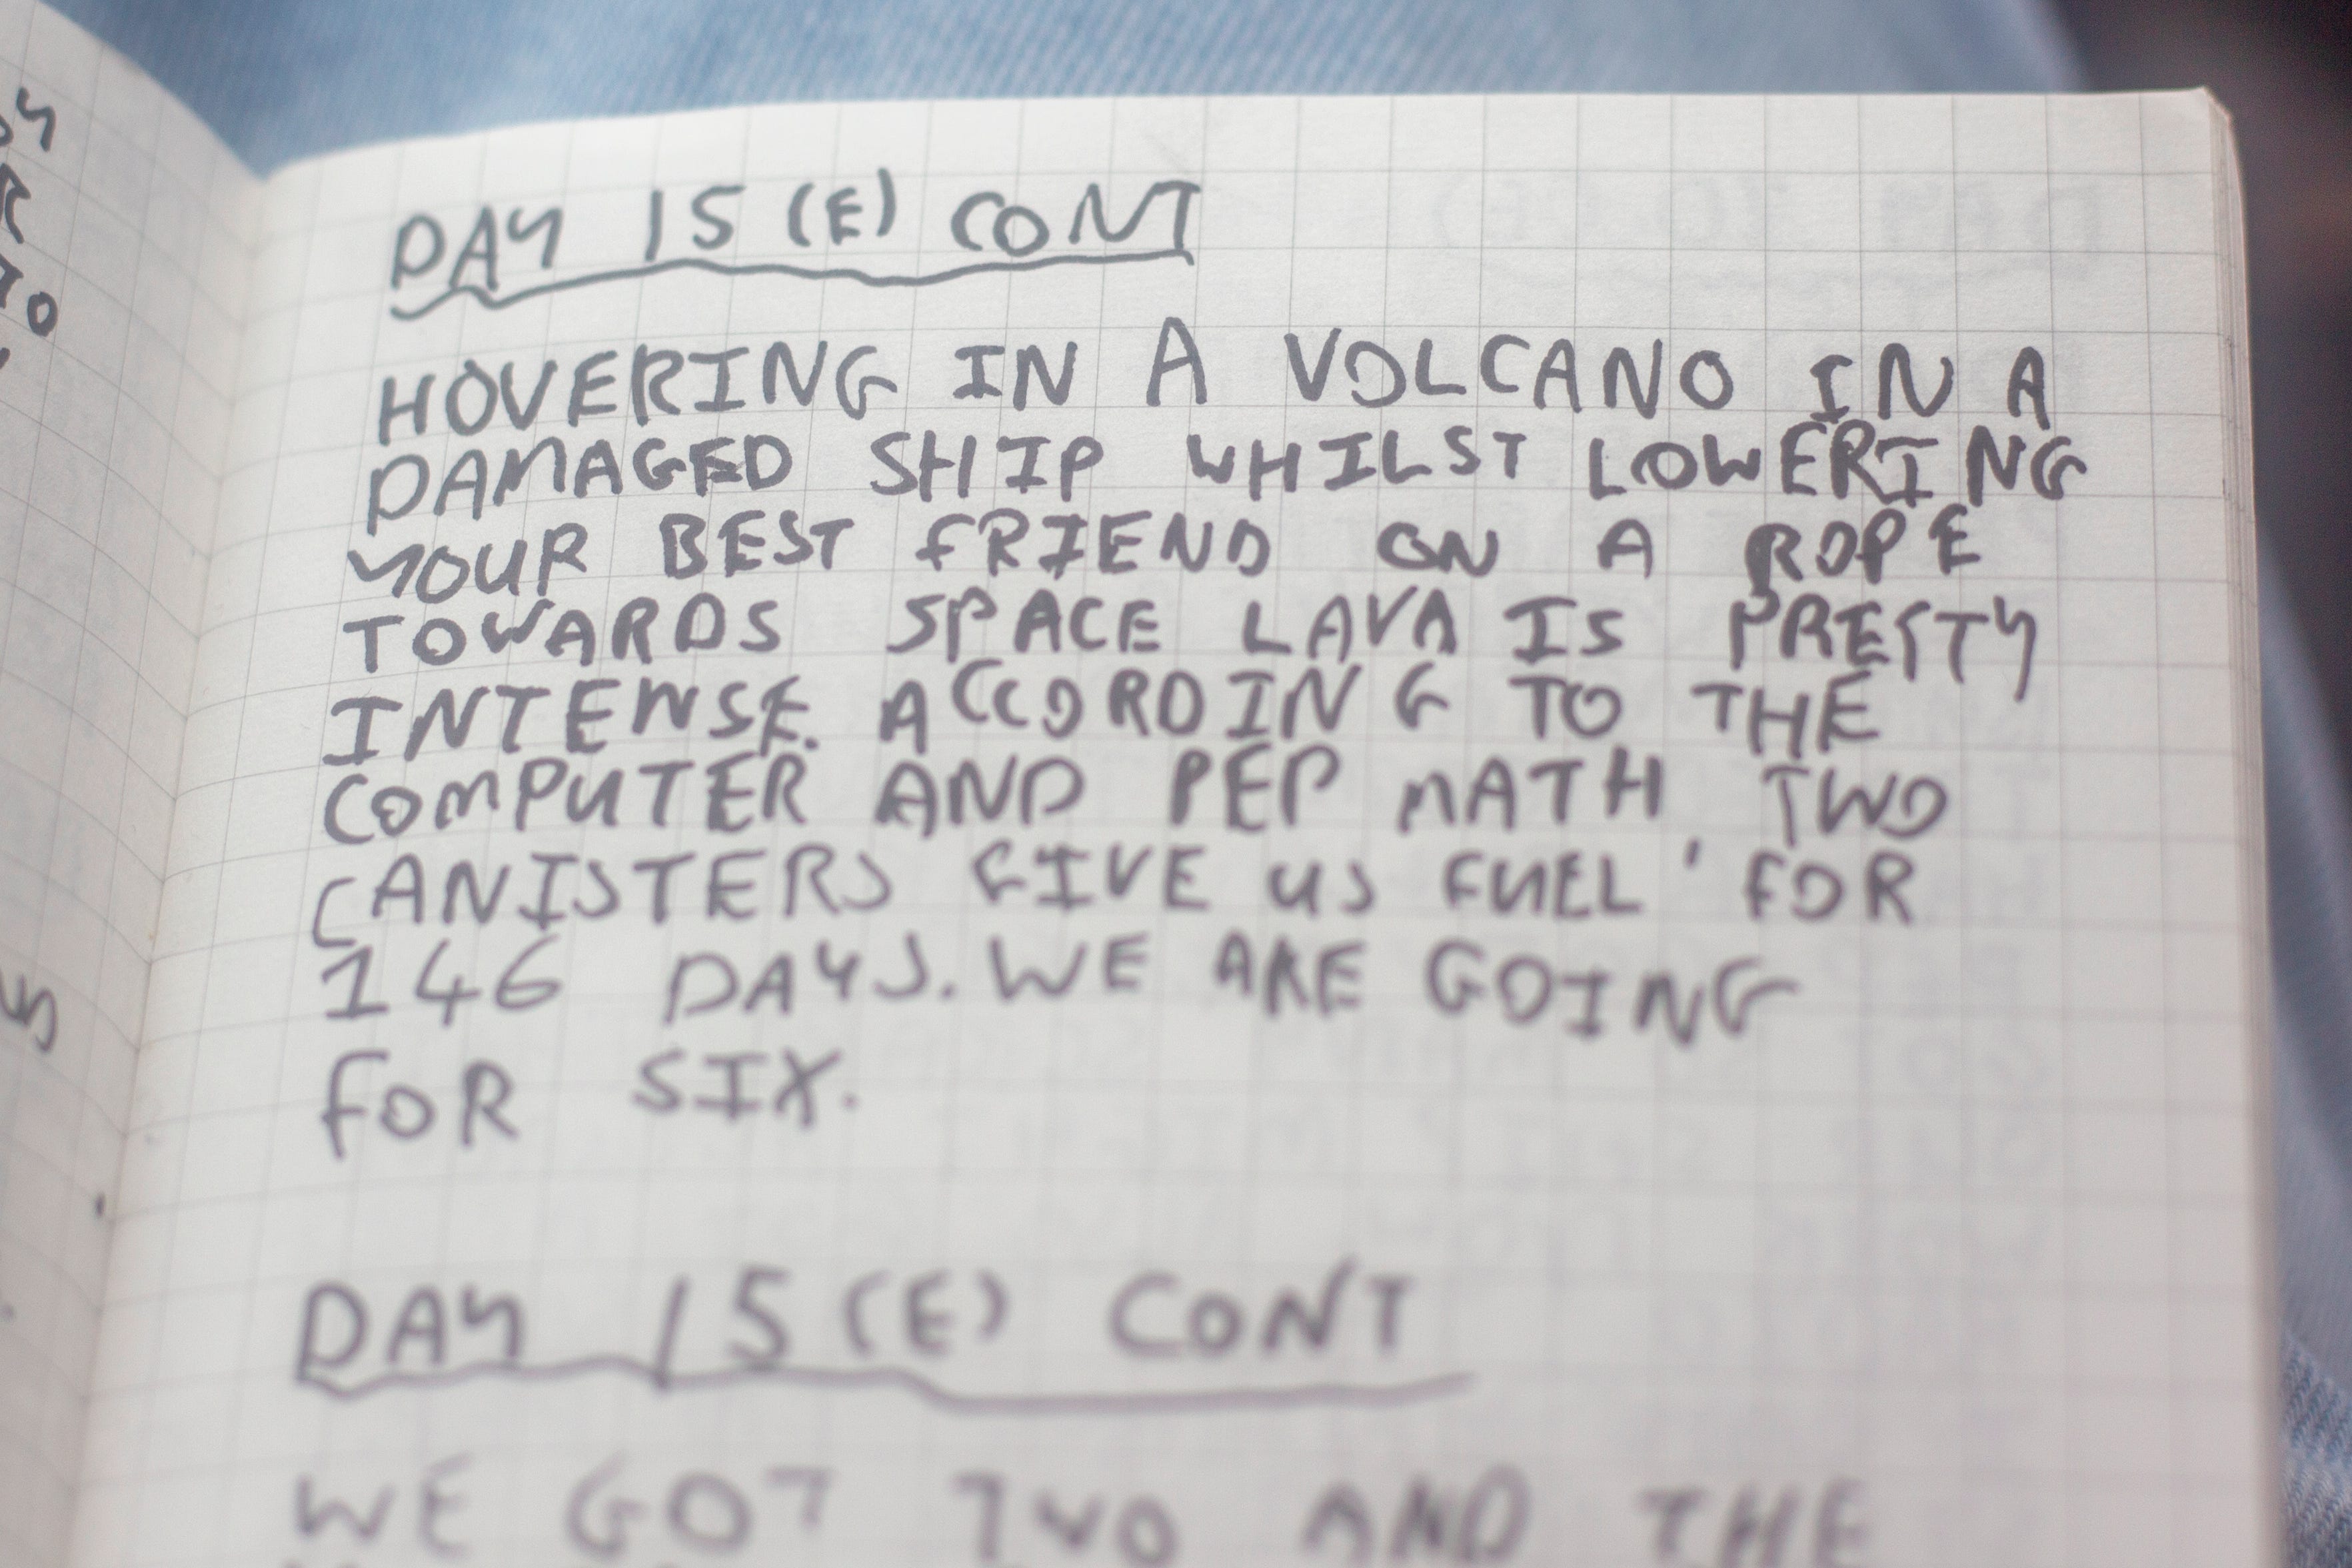 DAY 15 (E) CONT
HOVERING IN A VOLCANO IN A
DAMAGED SHIP WHILST LOWERING
YOUR BEST FRIEND ON A ROPE
TOWARDS SPACE LAVA IS PRETTY
INTENSE. ACCORDING TO THE
COMPUTER AND PEP MATH, TWO
CANISTERS GIVE US FUEL FOR
146 DAYS. WE ARE GOING
FOR SIX.
DAY 15 (E) CONT
WE GOT TWO AND THE